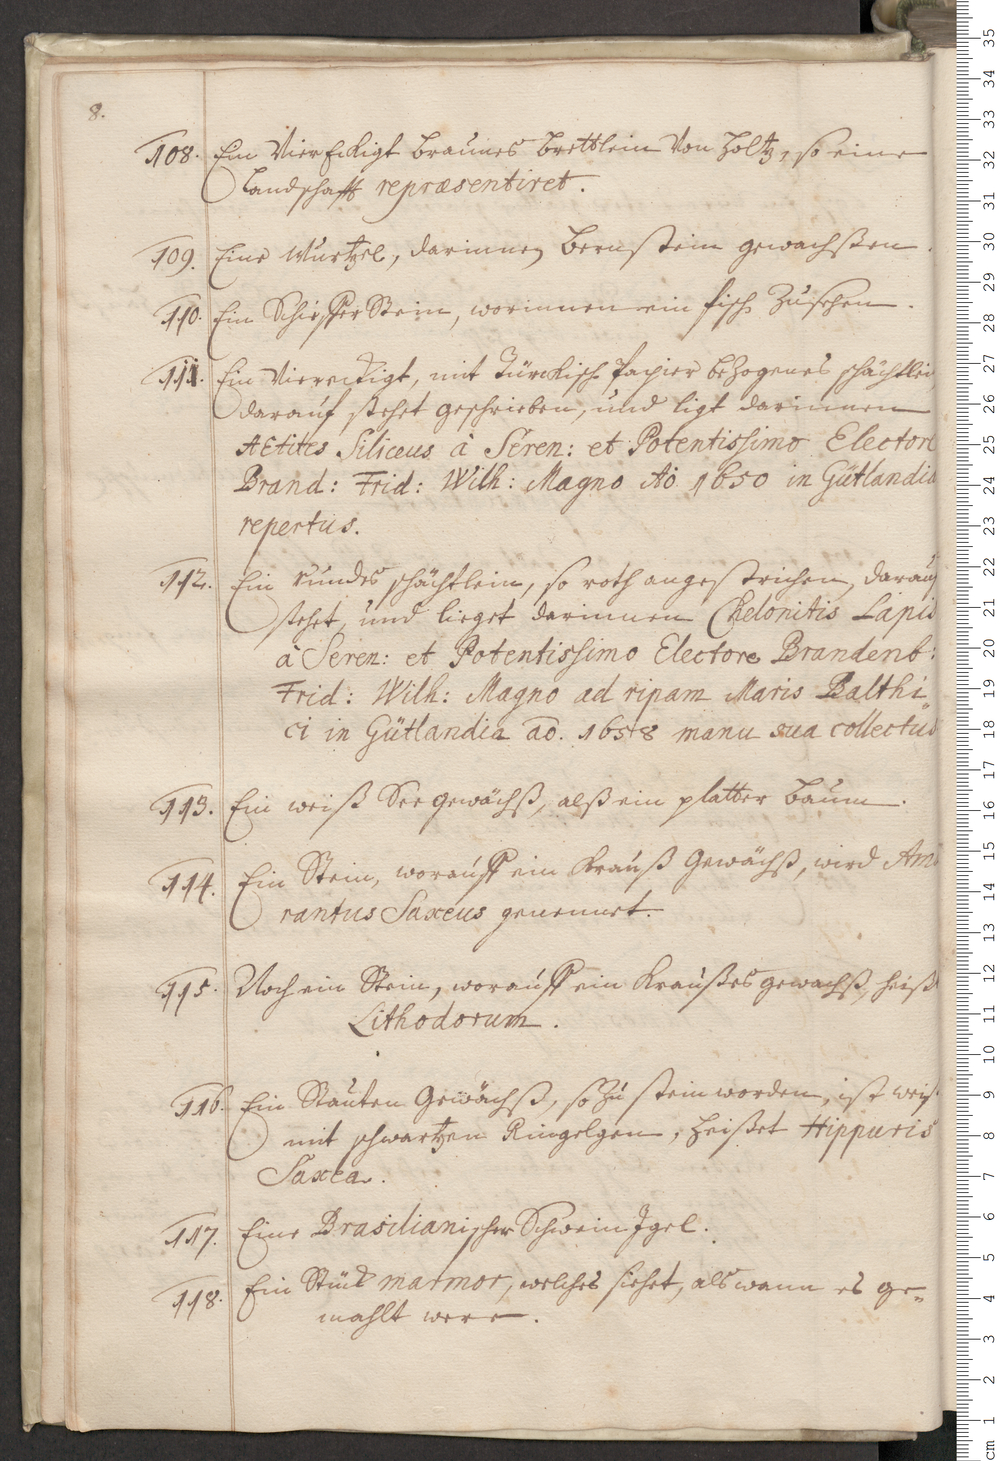 8.
108. Ein VierEckigt braunes brettlein von Holtz, so eine
Landschafft repræsentiret.
109. Eine Wurtzel, darinnen Bernstein gewachsen.
110. Ein SchiefferStein, worinnen ein fisch Zusehen.
111. Ein Viereckigt, mit Türckisch Papier beZogenes schächtlein
darauf stehet geschrieben, und ligt darinnen
AEtites Siliceus à Seren: et Potentissimo Electore
Brand: Frid: Wilh: Magno Ao 1650 in Gütlandia
repertus.
112. Ein rundes schächtlein, so roth angestrichen, darauf
stehet, und lieget darinnen Chelonitis Lapis
à Seren: et Potentissimo Electore Brandenb:
Frid: Wilh: Magno ad ripam Maris Balthi
ci in Gütlandia ao. 1658 manu sua collectus
113. Ein weiß See gewächß, alß ein platter baum.
114. Ein Stein, worauff ein Krauß Gewächß, wird Ama
rantus Saxeus genennet.
115. Noch ein Stein, worauff ein Kraußes gewachß, heist
Lithodorum.
116. Ein Stauten Gewächß, so Zu stein worden, ist weiß
mit schwartzen Ringelgen, heißet Hippuris
Saxea.
117. Eine Brasilianischer Schwein Jgel.
118. Ein Stück marmor, welches siehet, als wann es ge=
mahlt were.
35
34
33
32
31
30
29
28
27
26
25
24
23
22
21
20
19
18
17
16
15
14
13
12
11
10
9
8
7
6
5
4
3
2
1
cm